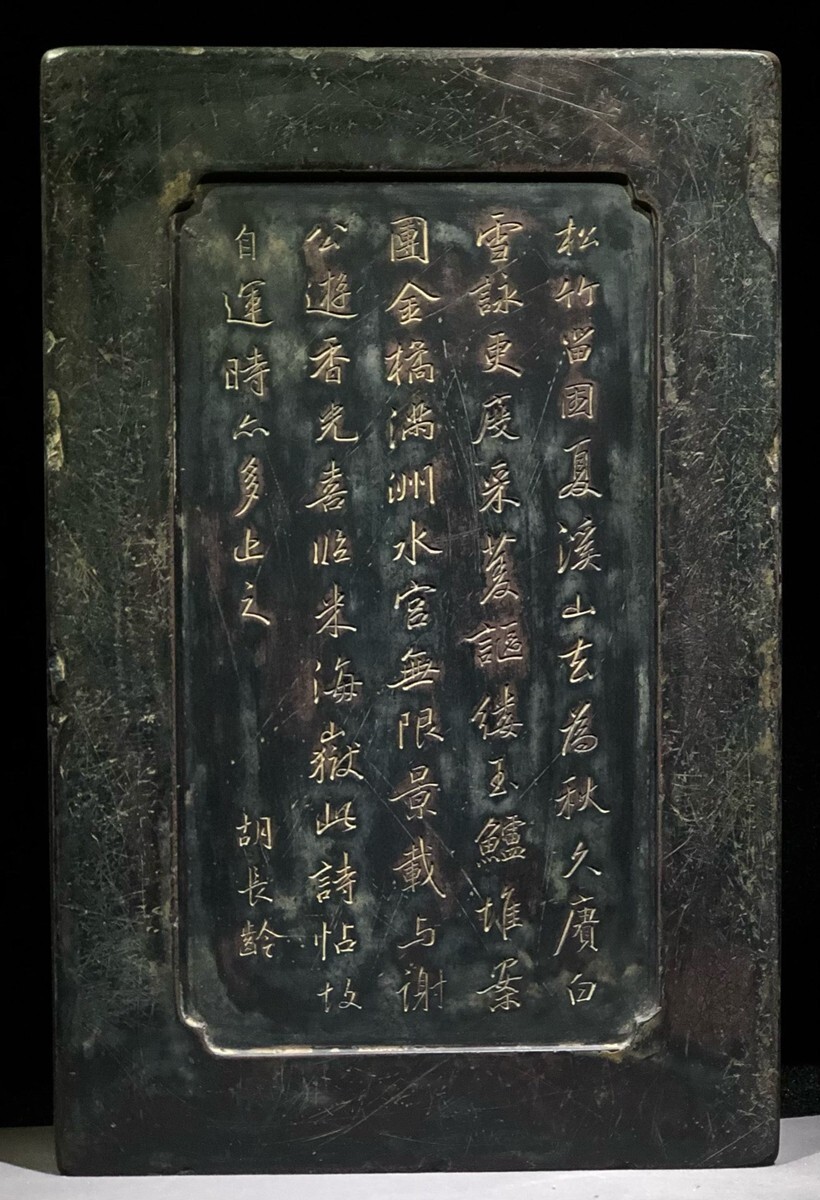 松竹留因夏溪山去為秋久賡白
雪詠更度采菱謳縷玉鱸堆案
團金橘滿洲水宮無限景載与謝
公遊香光喜臨米海嶽此詩帖故
自運時亦多止之
胡長齡